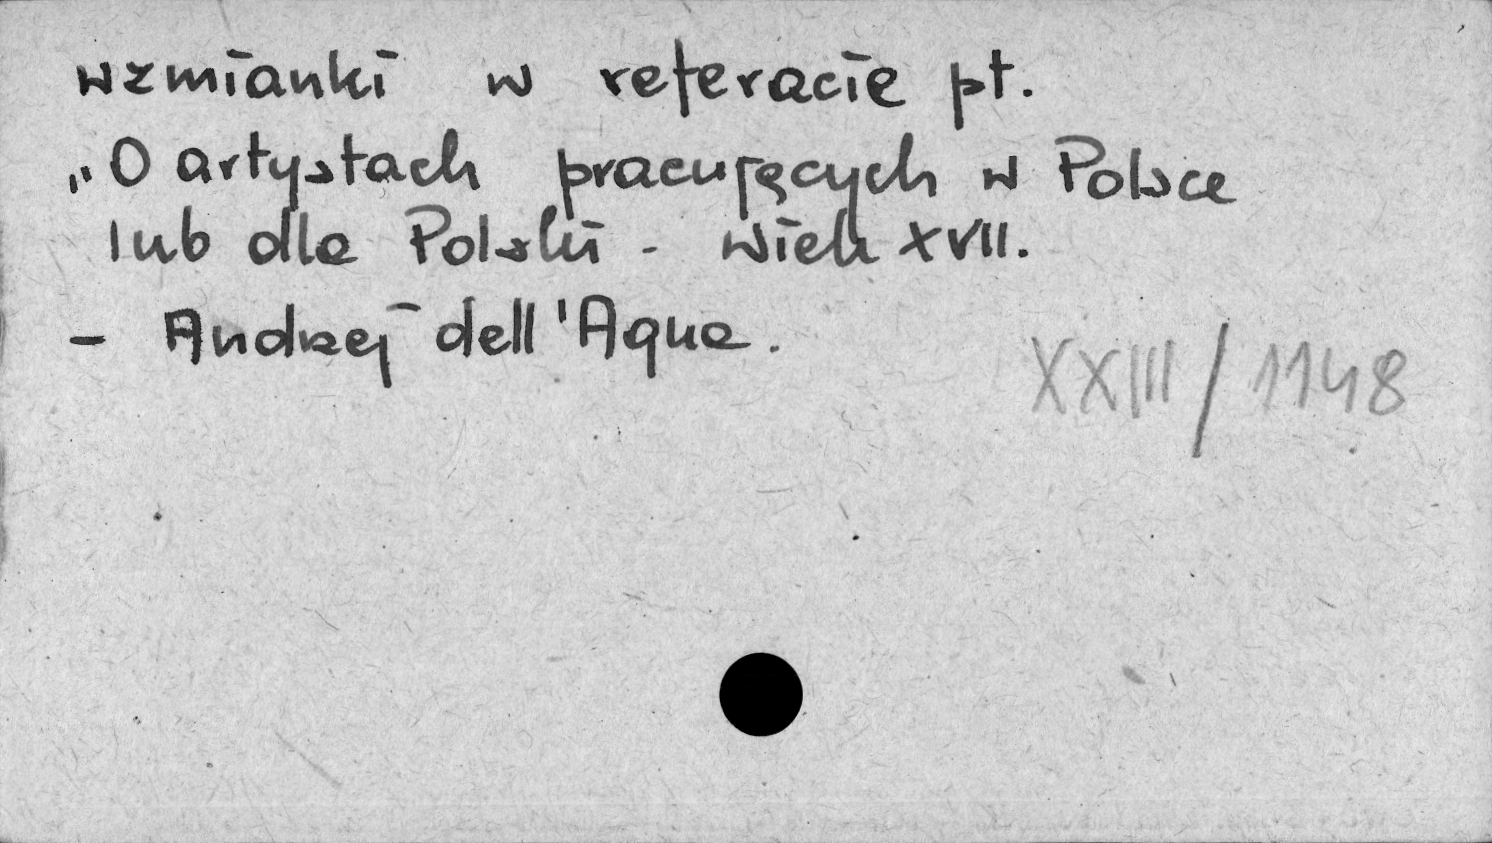 wzmianki w referacie pt.
„O artystach pracujących w Polsce
lub dla Polski - wiek XVII.
- Andrzej dell'Aqua.
XXIII/1148